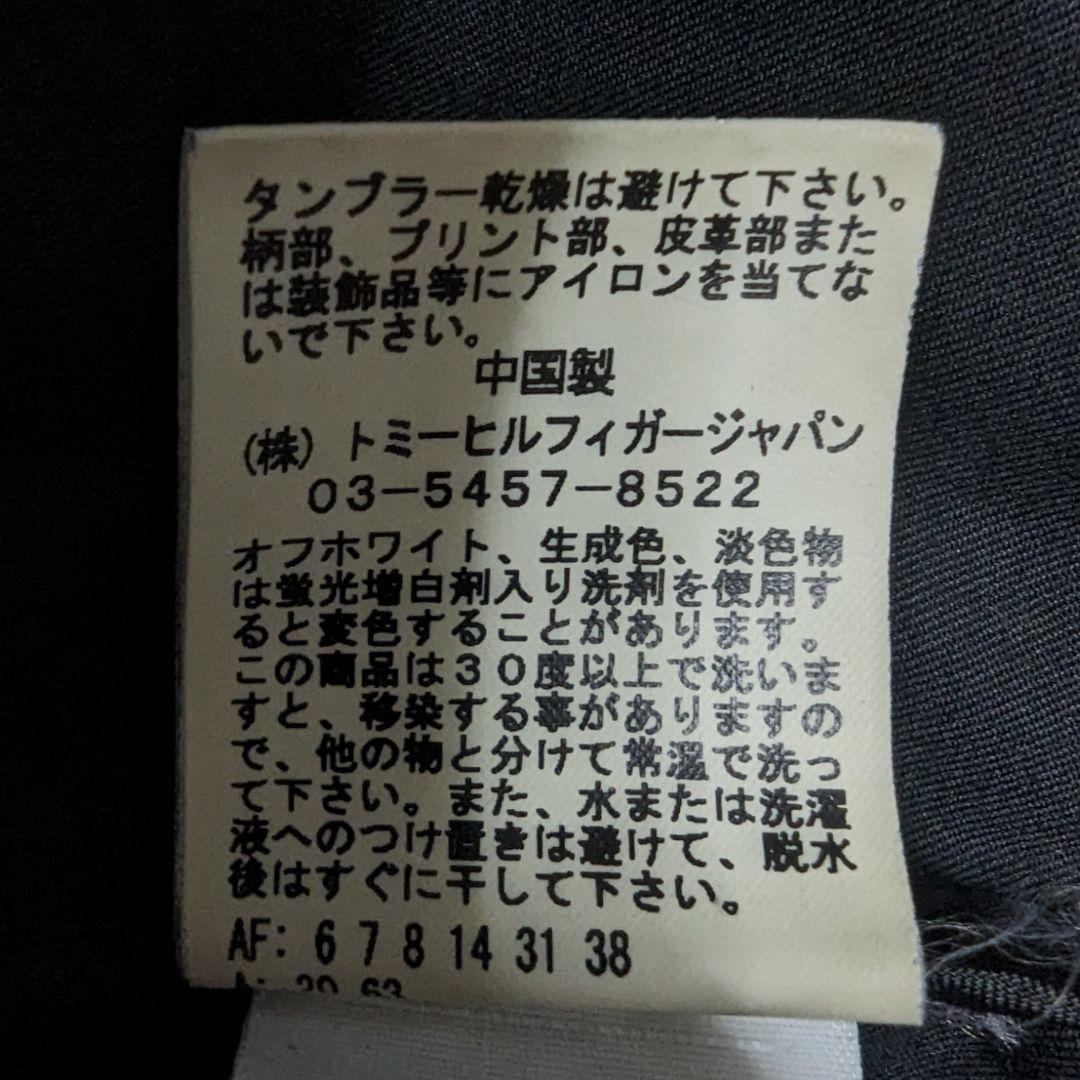 タンブラー乾燥は避けて下さい。
柄部、プリント部、皮革部また
は装飾品等にアイロンを当てな
いで下さい。
中国製
(株)トミーヒルフィガージャパン
03-5457-8522
オフホワイト、生成色、淡色物
は蛍光増白剤入り洗剤を使用す
ると変色することがあります。
この商品は30度以上で洗いま
すと、移染する事がありますの
で、他の物と分けて常温で洗っ
て下さい。また、水または洗濯
液へのつけ置きは避けて、脱水
後はすぐに干して下さい。
AF: 6 7 8 14 31 38